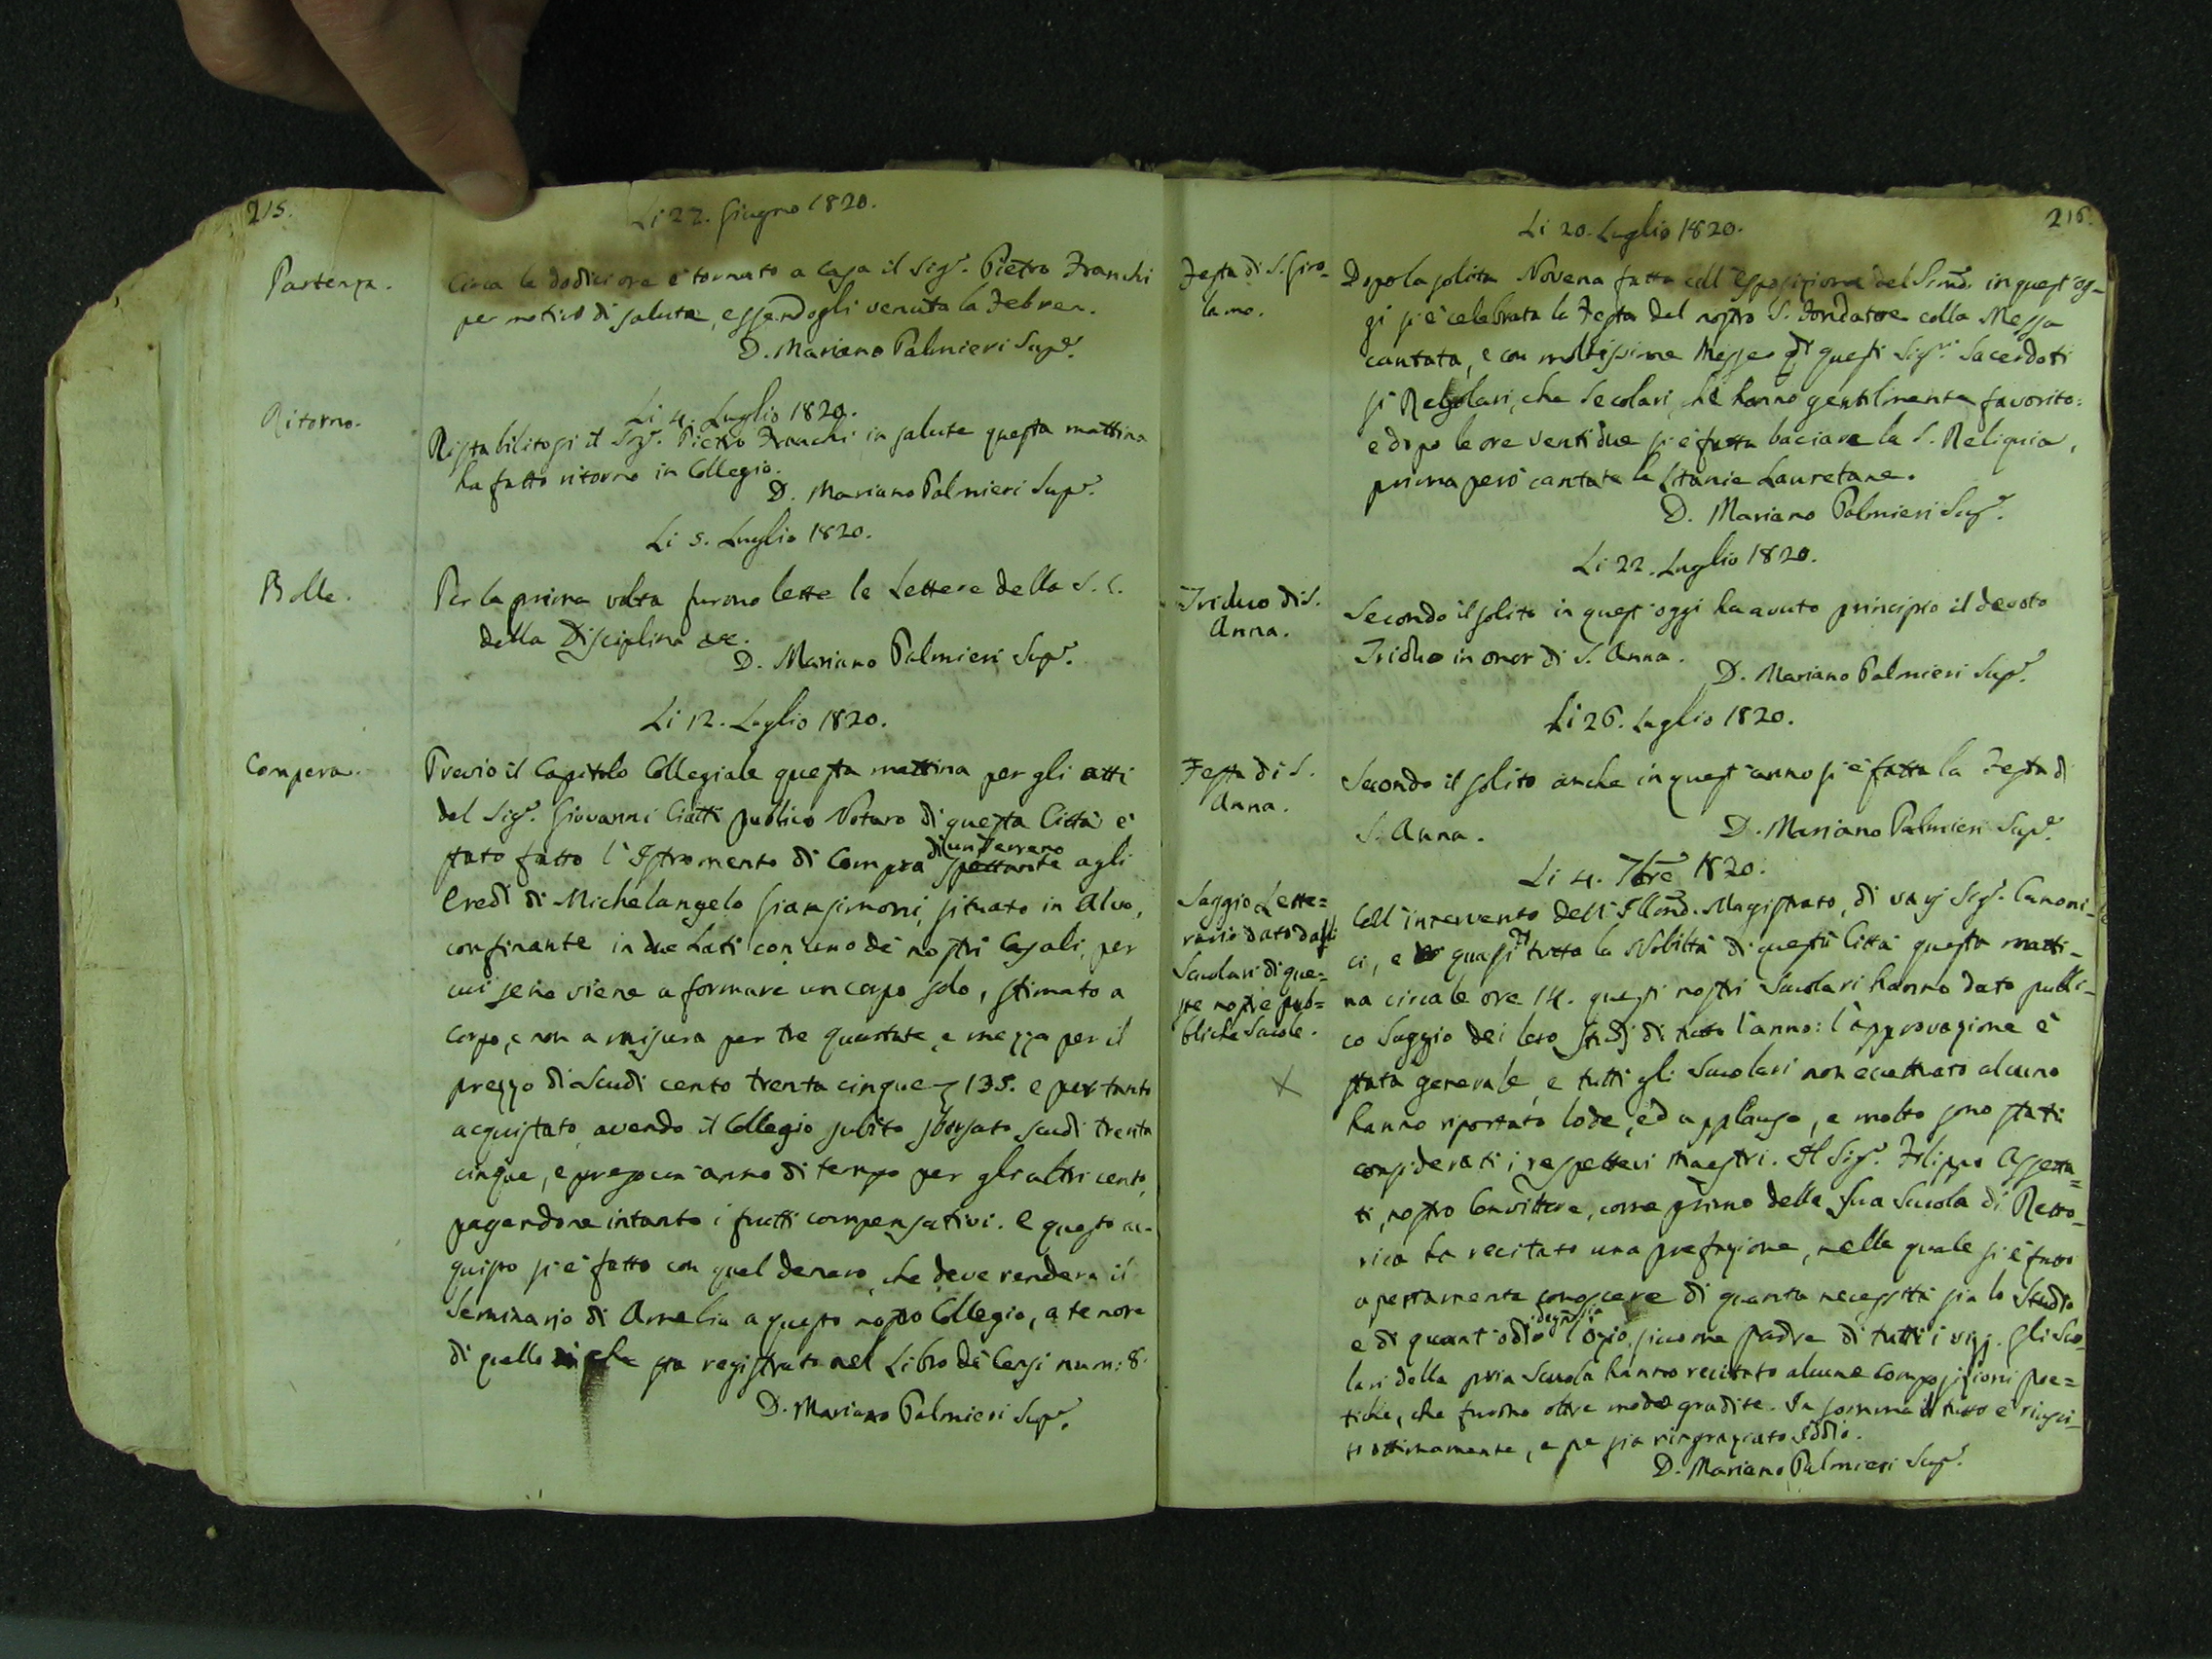 215.
Li 22. Giugno 1820.
Partenza.
Circa le dodici ore è tornato a casa il Sigr. Pietro Franchi
per motivo di salute, essendogli venuta la Febre.
D. Mariano Palmieri Supr.
Li 4. Luglio 1820.
Ritorno.
Ristabilitosi il Sigr. Pietro Franchi in salute questa mattina
ha fatto ritorno in Collegio.
D. Mariano Palmieri Supr.
Li 5. Luglio 1820.
Bolle.
Per la prima volta furono lette le Lettere della S. C.
della Disciplina &c.
D. Mariano Palmieri Supr.
Li 12. Luglio 1820.
Compera.
Previo il Capitolo Collegiale questa mattina per gli atti
del Sigr. Giovanni Ciatti publico Notaro di questa Città è
stato fatto l'Istromento di Compra di un Terreno spettante agli
Eredi di Michelangelo Giansimoni, situato in Alvo,
confinante in due Lati con uno de' nostri Casali, per
cui se ne viene a formare un corpo solo, stimato a
corpo, e non a misura per tre quartate, e mezza per il
prezzo di Scudi cento trenta cinque 135. e per tanto
acquistato, avendo il Collegio subito sborsato scudi trenta
cinque, e preso un'anno di tempo per gli altri cento,
pagandone intanto i frutti compensativi. E questo ac-
quisto si è fatto con quel denaro, che deve rendere il
Seminario di Amelia a questo nostro Collegio, a tenore
di quello che sta registrato nel Libro de' Censi num: 8.
D. Mariano Palmieri Supr.
216.
Li 20. Luglio 1820.
Festa di S. Giro-
lamo.
Dopo la solita Novena fatta coll'esposizione del Smo. in quest'og-
gi si è celebrata la Festa del nostro S. Fondatore colla Messa
cantata, e con moltissime Messe di questi Sigri. Sacerdoti
sì Regolari, che Secolari, che hanno gentilmente favorito:
e dopo le ore venti due si è fatta baciare la S. Reliquia,
prima però cantate le Litanie Lauretane.
D. Mariano Palmieri Supr.
Li 22. Luglio 1820.
Triduo di S.
Anna.
Secondo il solito in quest'oggi ha avuto principio il devoto
Triduo in onor di S. Anna.
D. Mariano Palmieri Supr.
Li 26. Luglio 1820.
Festa di S.
Anna.
Secondo il solito anche in quest'anno si è fatta la Festa di
S. Anna.
D. Mariano Palmieri Supr.
Li 4. 7bre 1820.
Saggio Lette=
rario dato dagli
Scuolari di que=
ste nostre pub=
bliche Scuole.
Coll'intervento dell' Illmo. Magistrato, di varj Sigri. Canoni-
ci, e quasi di tutta la Nobiltà di questa Città questa matti-
na circa le ore 14. questi nostri Scuolari hanno dato pubbli-
co Saggio dei loro studj di tutto l'anno: l'approvazione è
stata generale, e tutti gli Scuolari non eccettuato alcuno
hanno riportato lode, ed applauso, e molto sono stati
considerati i respettivi Maestri. Il Sigr. Filippo Assetta=
ti, nostro Convittore, come primo della sua Scuola di Retto-
rica ha recitato una prefazione, nella quale si è fatto
apertamente conoscere di quanta necessità sia lo Studio
e di quant'odio degno sia l'ozio, siccome padre di tutti i vizj. Gli Scuo-
lari della pria Scuola hanno recitato alcune composizioni poe=
tiche, che furono oltre modo gradite. In somma il tutto è riusci-
to ottimamente, e ne sia ringraziato Iddio.
D. Mariano Palmieri Supr.